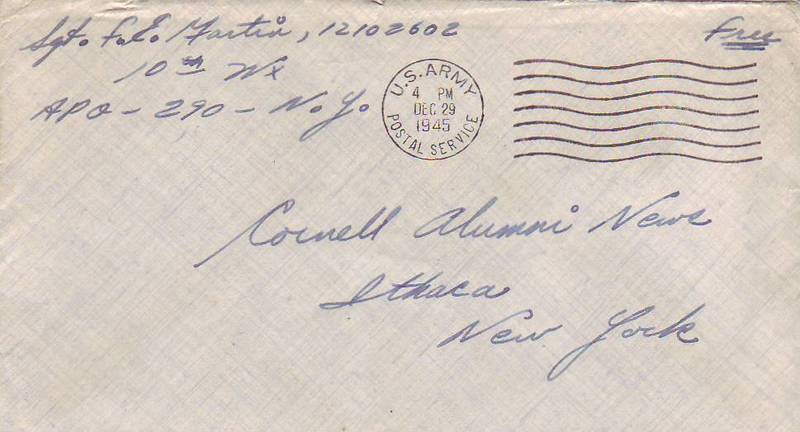 Sgt. F. E. Martin, 12102602
Free
10th Wx
APO - 290 - N.Y.
U.S. ARMY
4 PM
DEC 29
1945
POSTAL SERVICE
Cornell Alumni News
Ithaca
New York